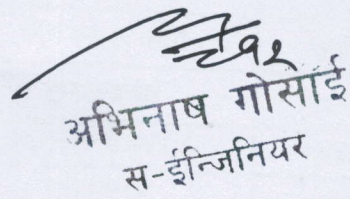 अभिनाष गोसाई
स-ईन्जिनियर